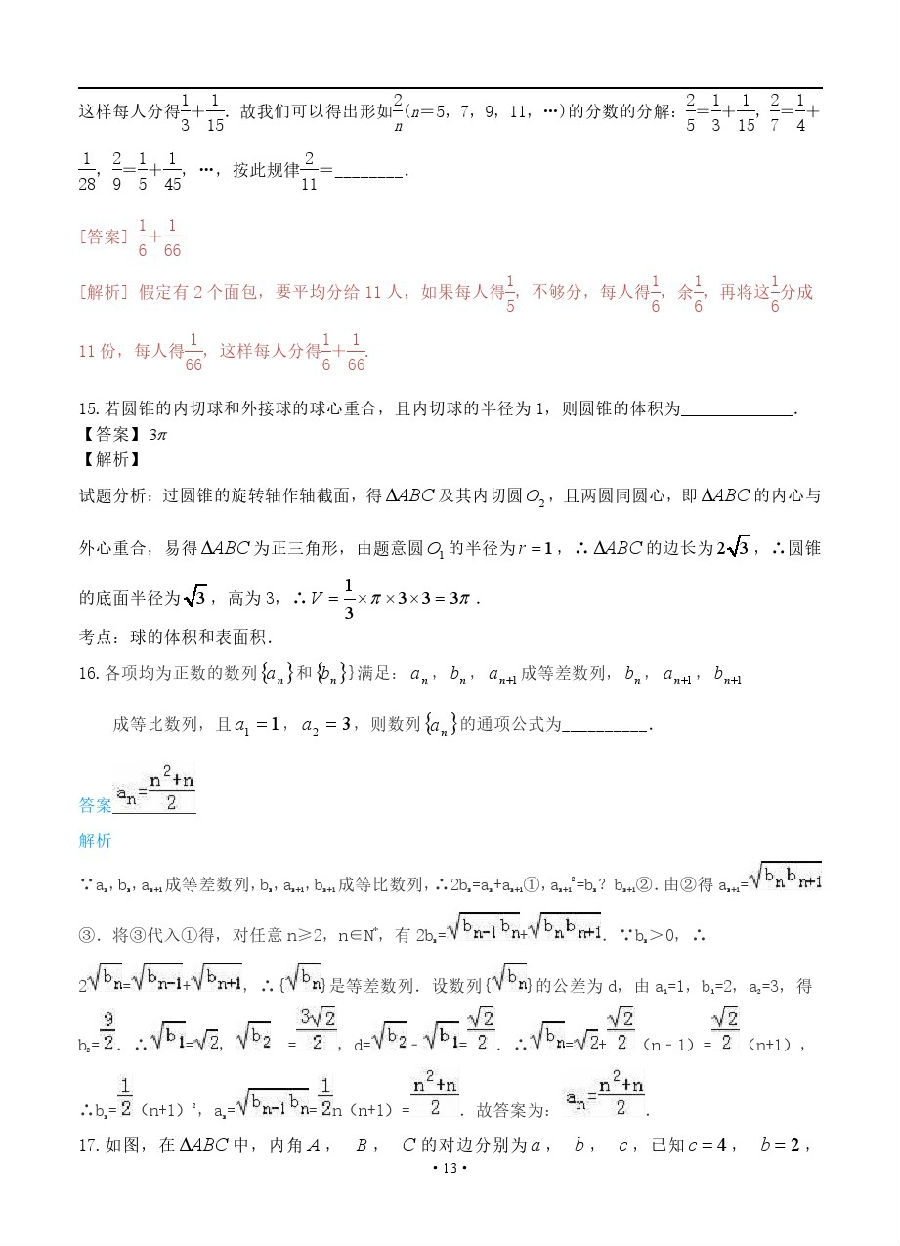 这样每人分得1/3+1/15. 故我们可以得出形如2/n(n=5, 7, 9, 11, …)的分数的分解: 2/5=1/3+1/15, 2/7=1/4+
1/28, 2/9=1/5+1/45, …, 按此规律2/11=________.
[答案] 1/6+1/66
[解析] 假定有 2 个面包, 要平均分给 11 人, 如果每人得1/5, 不够分, 每人得1/6, 余1/6, 再将这1/6分成
11 份, 每人得1/66, 这样每人分得1/6+1/66.
15. 若圆锥的内切球和外接球的球心重合, 且内切球的半径为 1, 则圆锥的体积为____________.
【答案】3π
【解析】
试题分析: 过圆锥的旋转轴作轴截面, 得ΔABC及其内切圆O₂, 且两圆同圆心, 即ΔABC的内心与
外心重合, 易得ΔABC为正三角形, 由题意圆O₁的半径为r=1, ∴ΔABC的边长为2√3, ∴圆锥
的底面半径为√3, 高为 3, ∴V=1/3×π×3×3=3π.
考点: 球的体积和表面积.
16. 各项均为正数的数列{aₙ}和{bₙ}}满足: aₙ, bₙ, aₙ₊₁成等差数列, bₙ, aₙ₊₁, bₙ₊₁
成等比数列, 且a₁=1, a₂=3, 则数列{aₙ}的通项公式为__________.
答案 aₙ=(n²+n)/2
解析
∵aₙ, bₙ, aₙ₊₁成等差数列, bₙ, aₙ₊₁, bₙ₊₁成等比数列, ∴2bₙ=aₙ+aₙ₊₁①, aₙ₊₁²=bₙ?bₙ₊₁②. 由②得 aₙ₊₁=√(bₙbₙ₊₁)
③. 将③代入①得, 对任意 n≥2, n∈N*, 有 2bₙ=√(bₙ₋₁bₙ)+√(bₙbₙ₊₁). ∵bₙ>0, ∴
2√bₙ=√bₙ₋₁+√bₙ₊₁, ∴{√bₙ}是等差数列. 设数列{√bₙ}的公差为 d, 由 a₁=1, b₁=2, a₂=3, 得
b₂=9/2. ∴√b₁=√2, √b₂ =3√2/2, d=√b₂-√b₁=√2/2. ∴√bₙ=√2+√2/2(n-1)=√2/2(n+1),
∴bₙ=1/2(n+1)², aₙ=√(bₙ₋₁bₙ)=1/2n(n+1)=(n²+n)/2. 故答案为: aₙ=(n²+n)/2.
17. 如图, 在ΔABC中, 内角A, B, C的对边分别为a, b, c, 已知c=4, b=2,
·13·